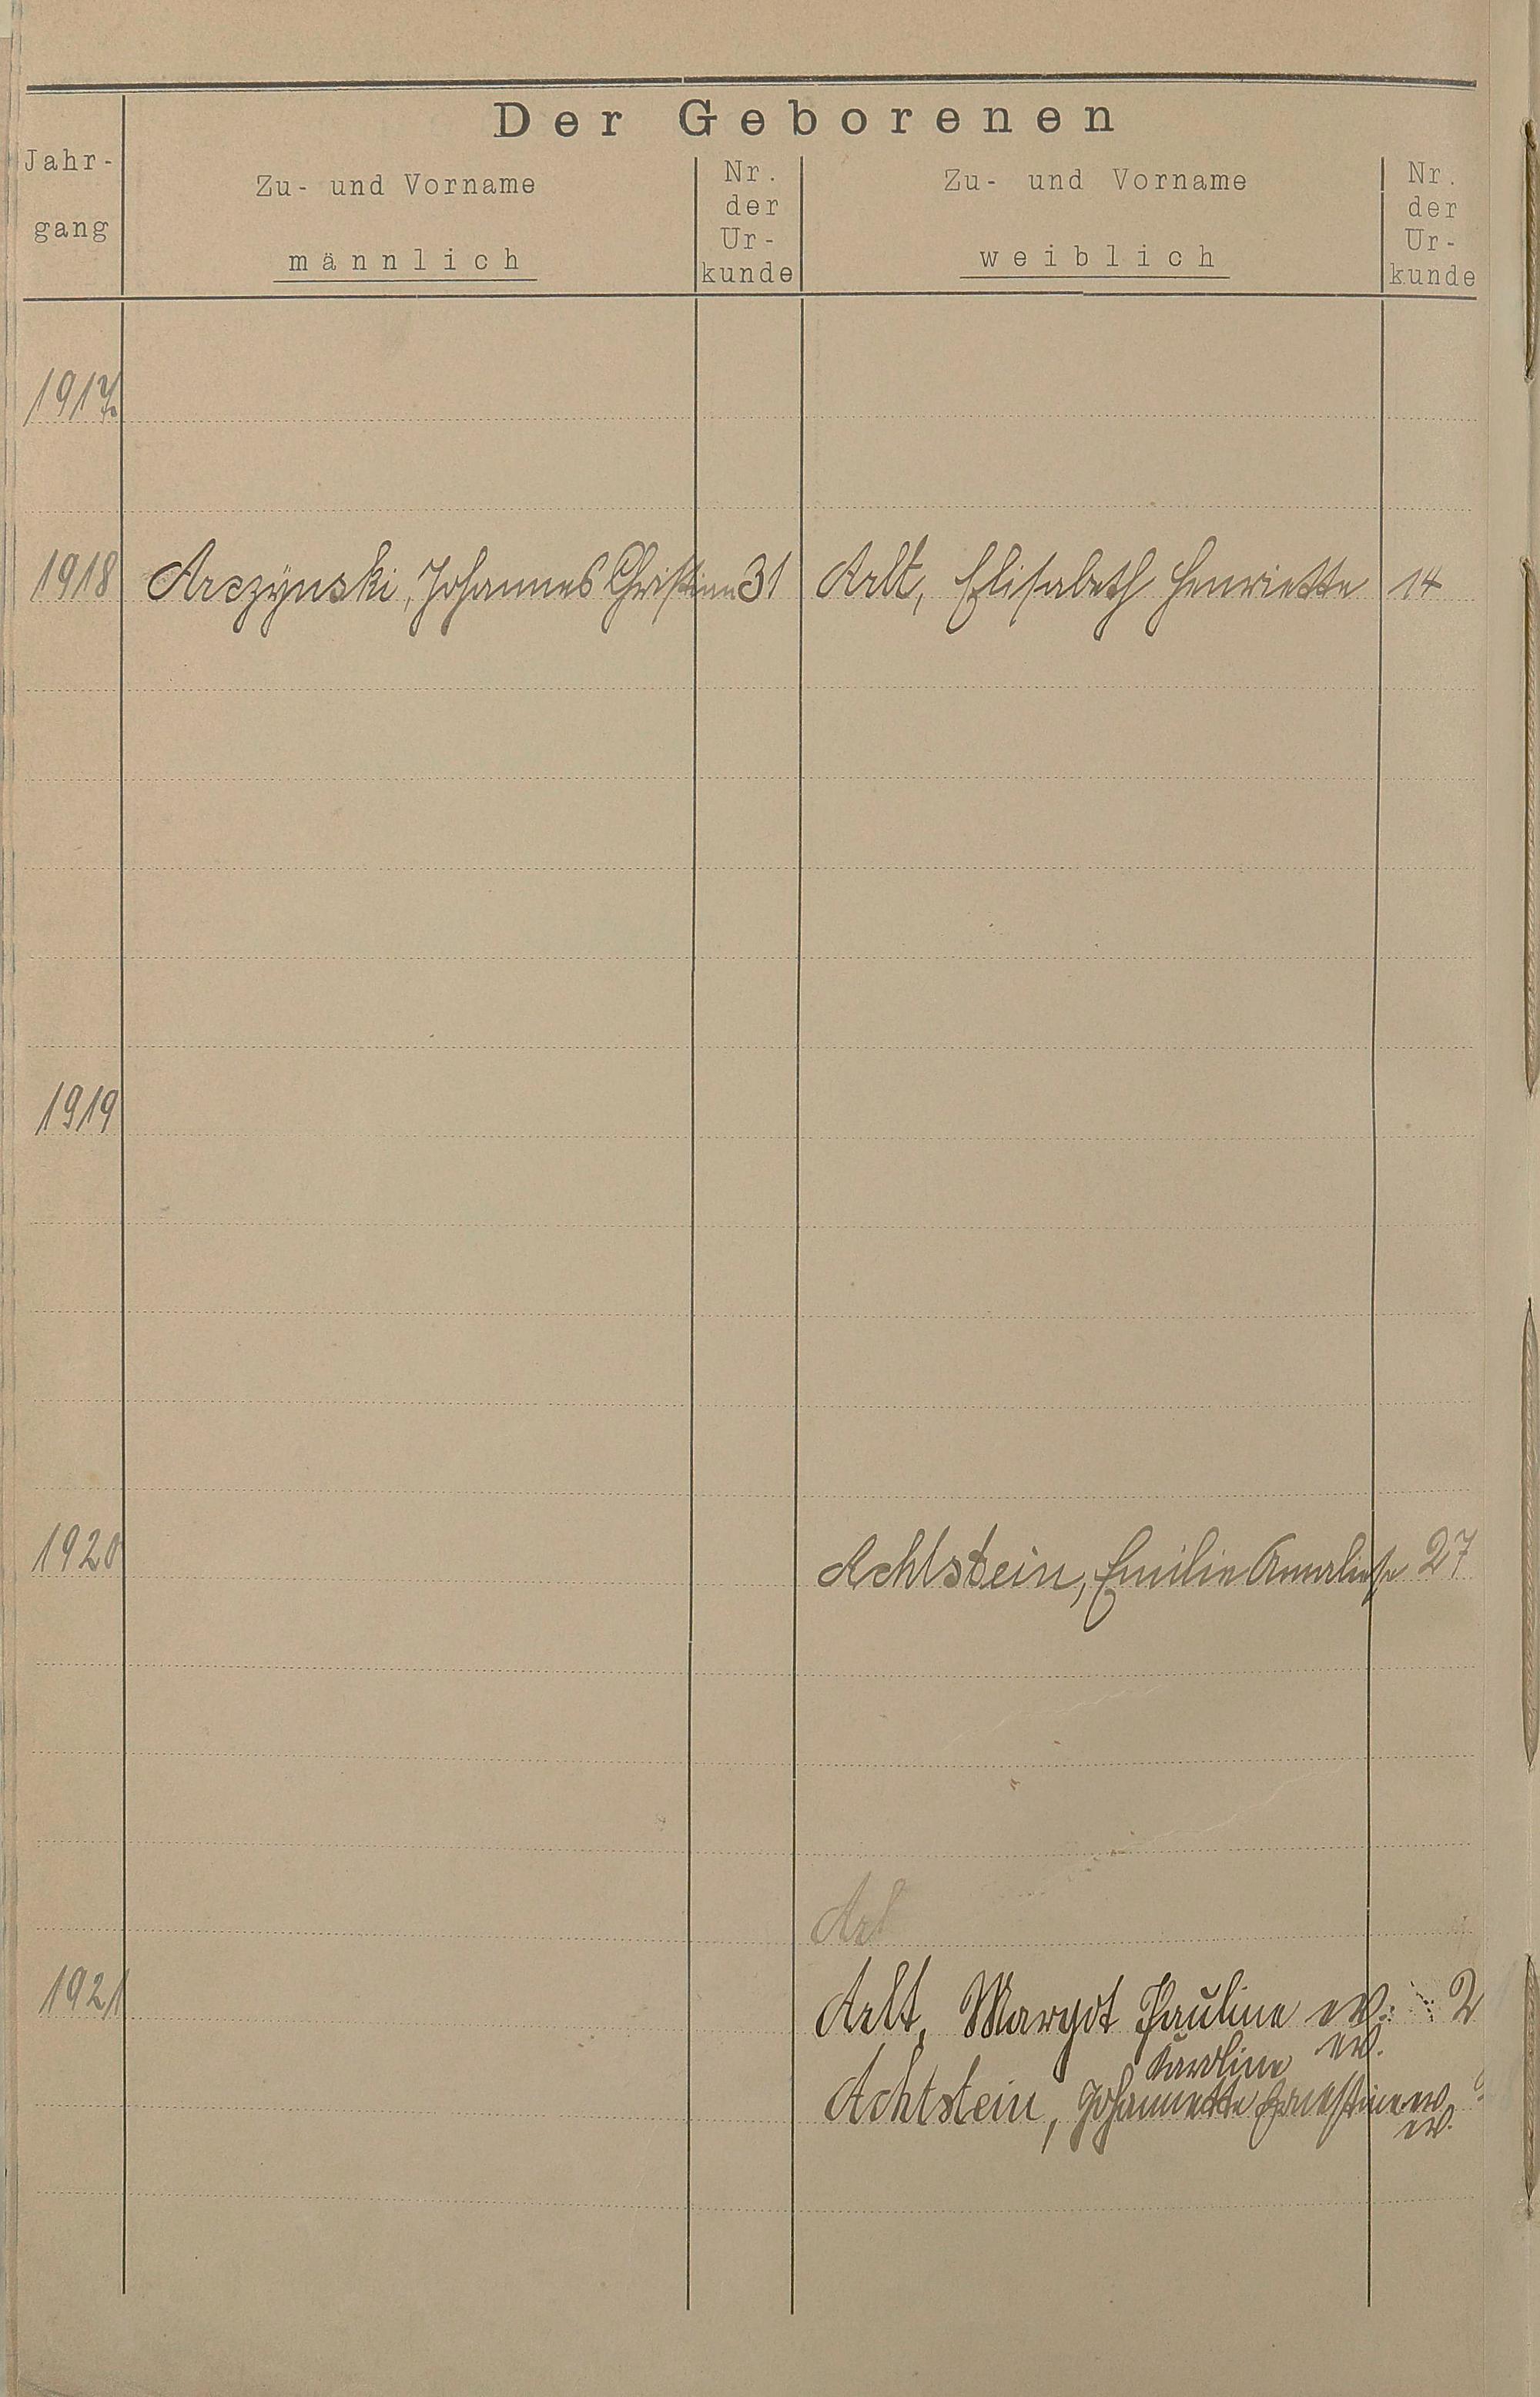 Der Geborenen
Jahr-
gang
Zu- und Vorname
männlich
Nr.
der
Ur-
kunde
Zu- und Vorname
weiblich
Nr.
der
Ur-
kunde
1917
1918 Arczÿnski, Johannes Christian 31 Arlt, Elisabeth Henriette 14
1919
1920 Achtstein, Emilie Annaliese 27
Arl
1921 Arlt, Margot Pauline ev. 2
Karoline ev.
Achtstein, Johannette Ernestine ev.
ev.